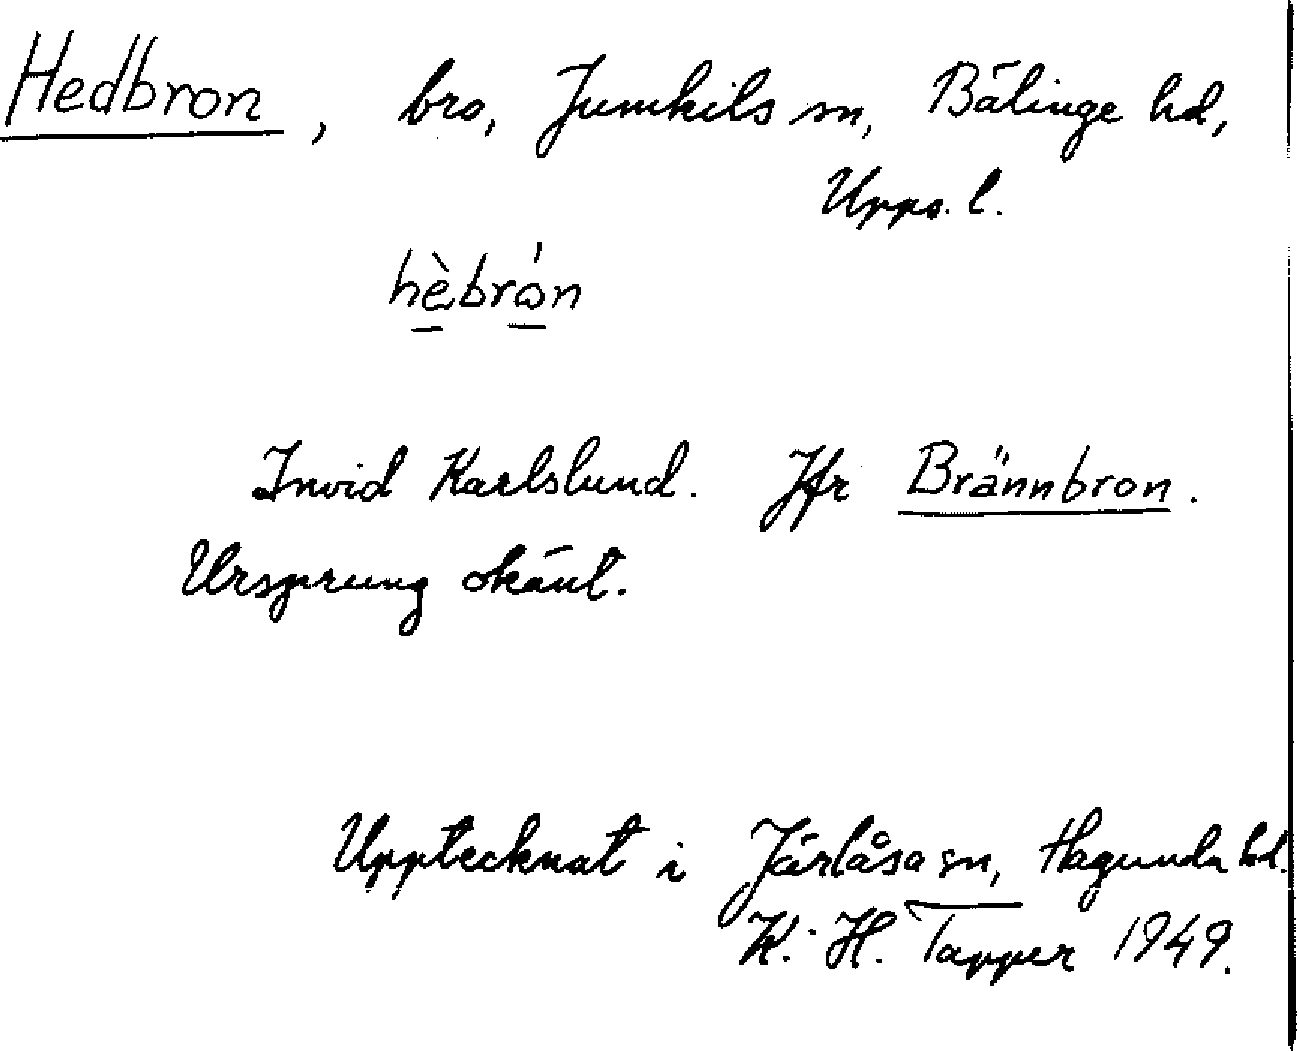 Hedbron, bro, Jumkils sn, Bälinge hd,
Upps. l.
hèbrån
Invid Karlslund. Jfr Brännbron.
Ursprung okänt.
Upptecknat i Järlåsa sn, Hagunda hd.
K. H. Tapper 1949.